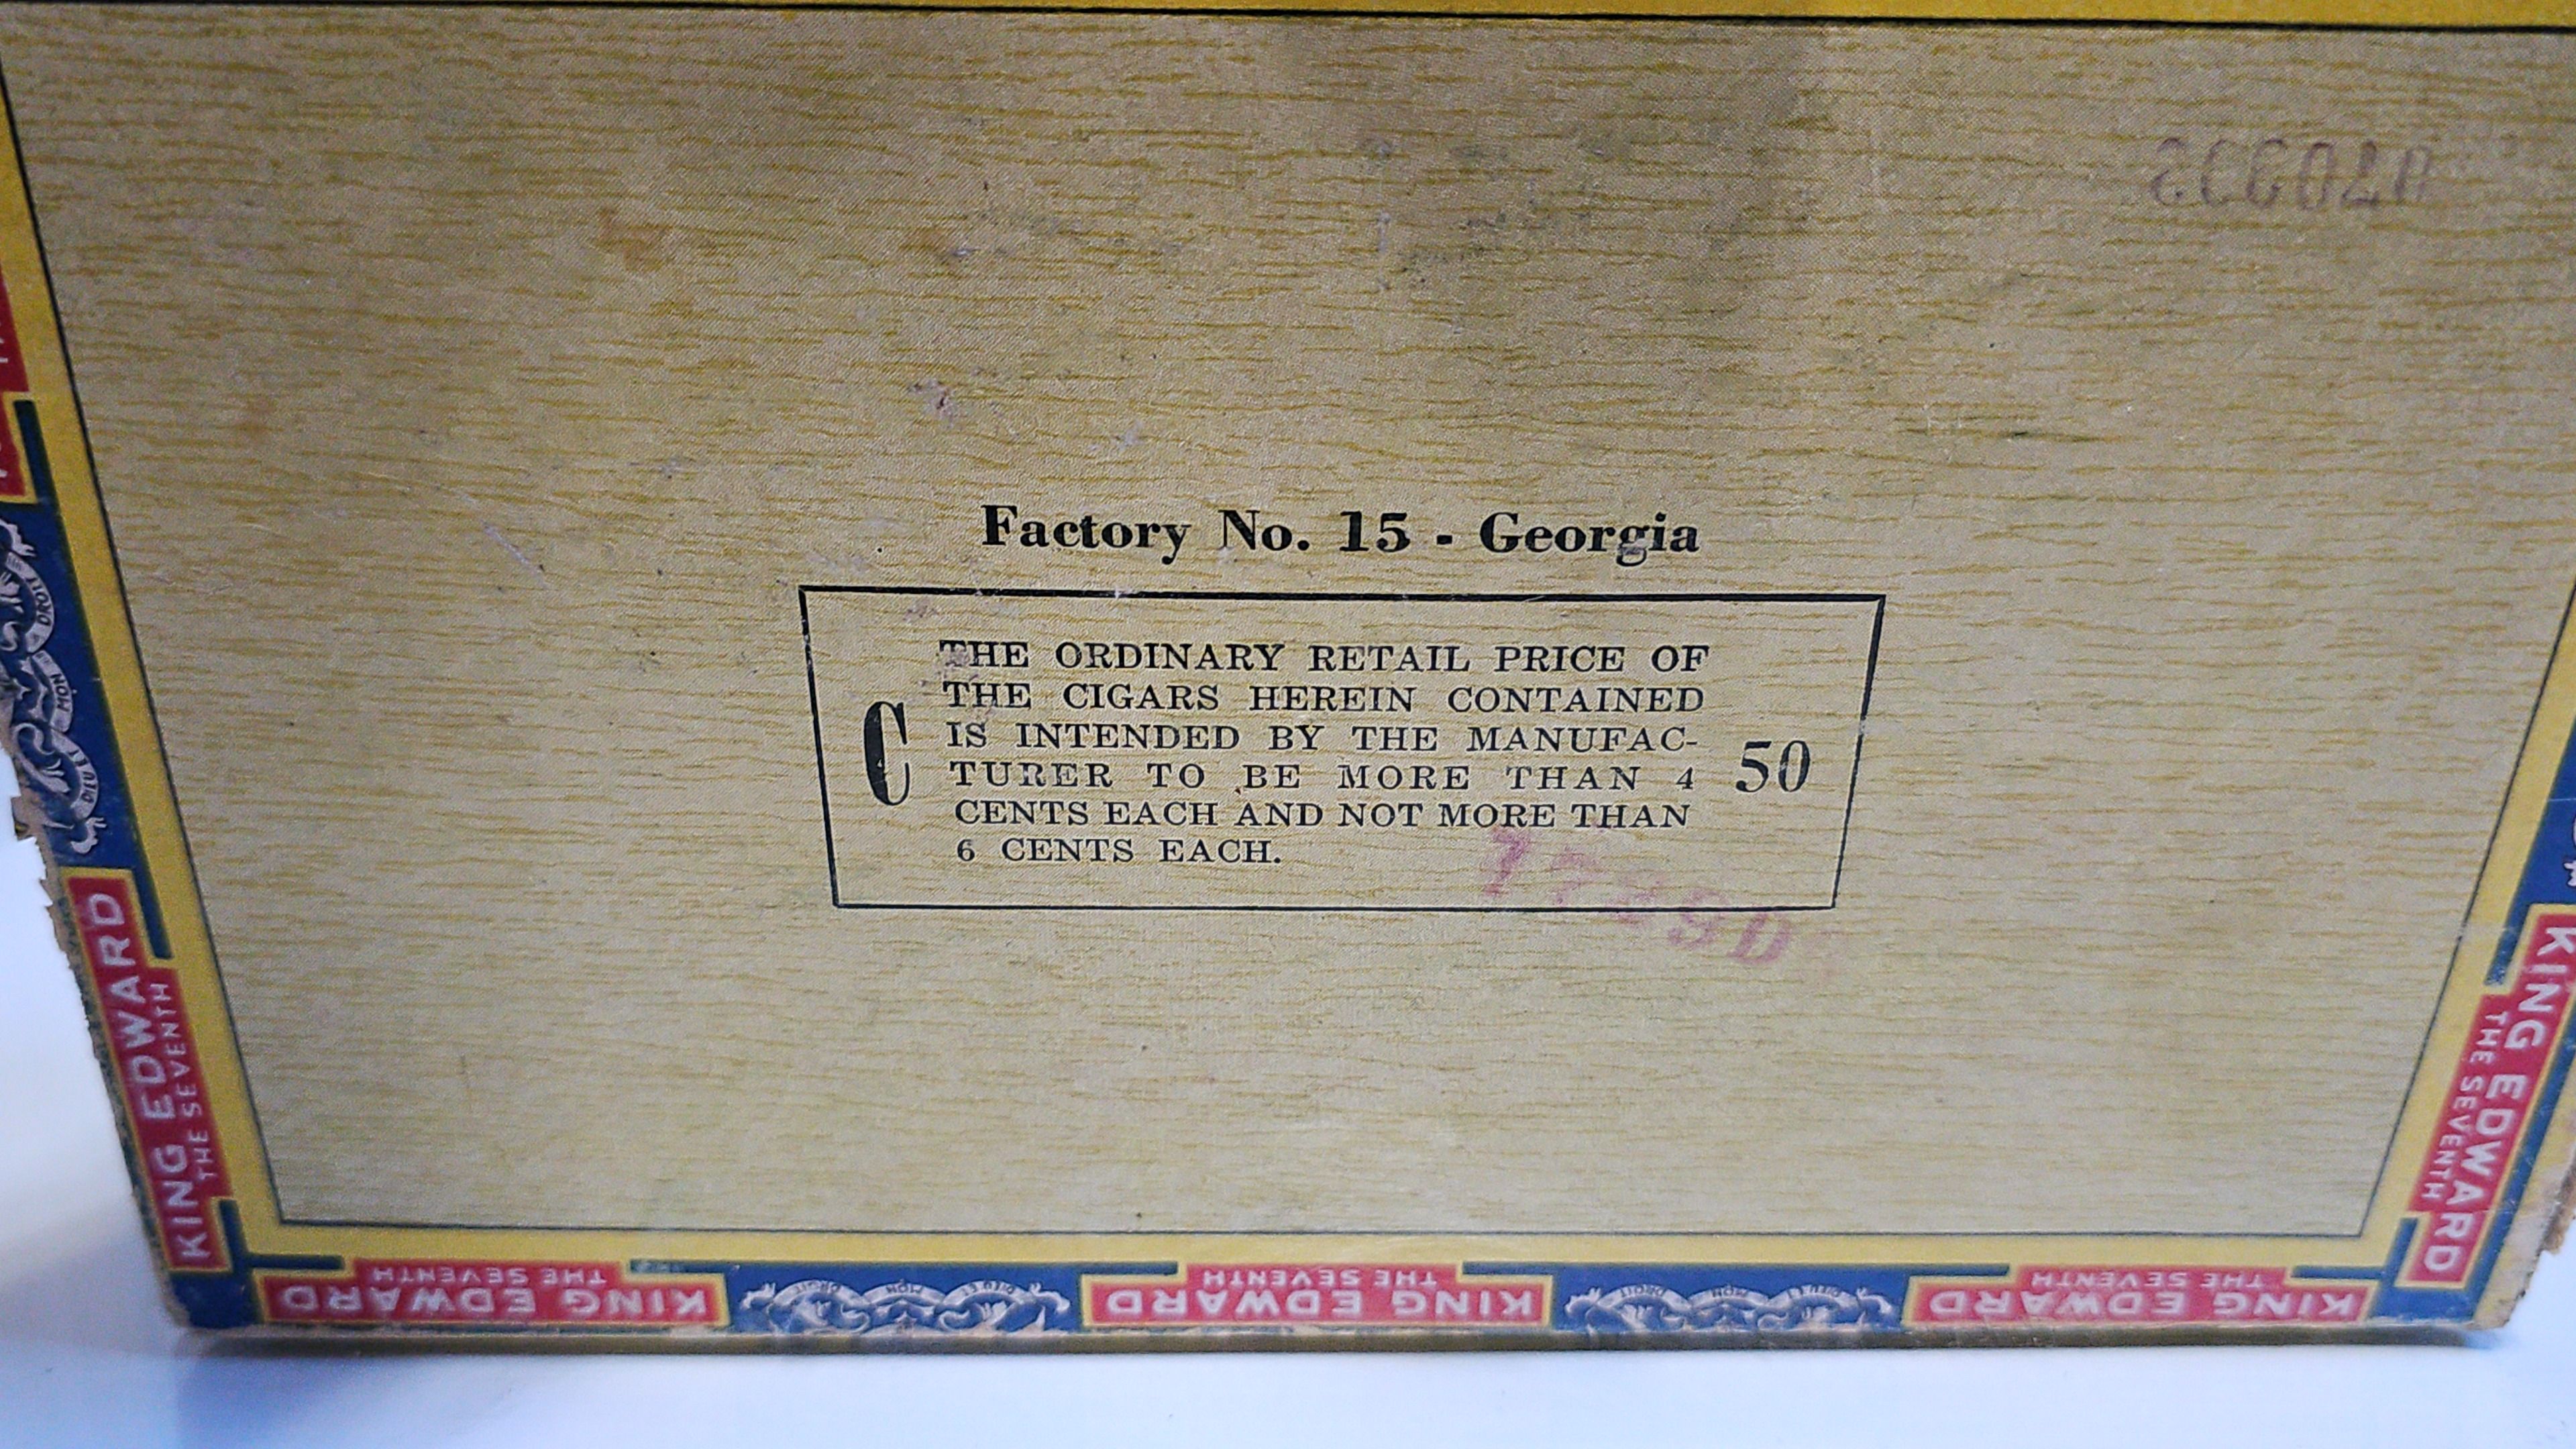 Factory No. 15 - Georgia
C
THE ORDINARY RETAIL PRICE OF
THE CIGARS HEREIN CONTAINED
IS INTENDED BY THE MANUFAC-
TURER TO BE MORE THAN 4
CENTS EACH AND NOT MORE THAN
6 CENTS EACH.
50
DROIT
MON
DIEU ET
KING EDWARD
THE SEVENTH
KING EDWARD
THE SEVENTH
KING EDWARD
THE SEVENTH
DIEU ET MON DROIT
KING EDWARD
THE SEVENTH
DIEU ET MON DROIT
KING EDWARD
THE SEVENTH